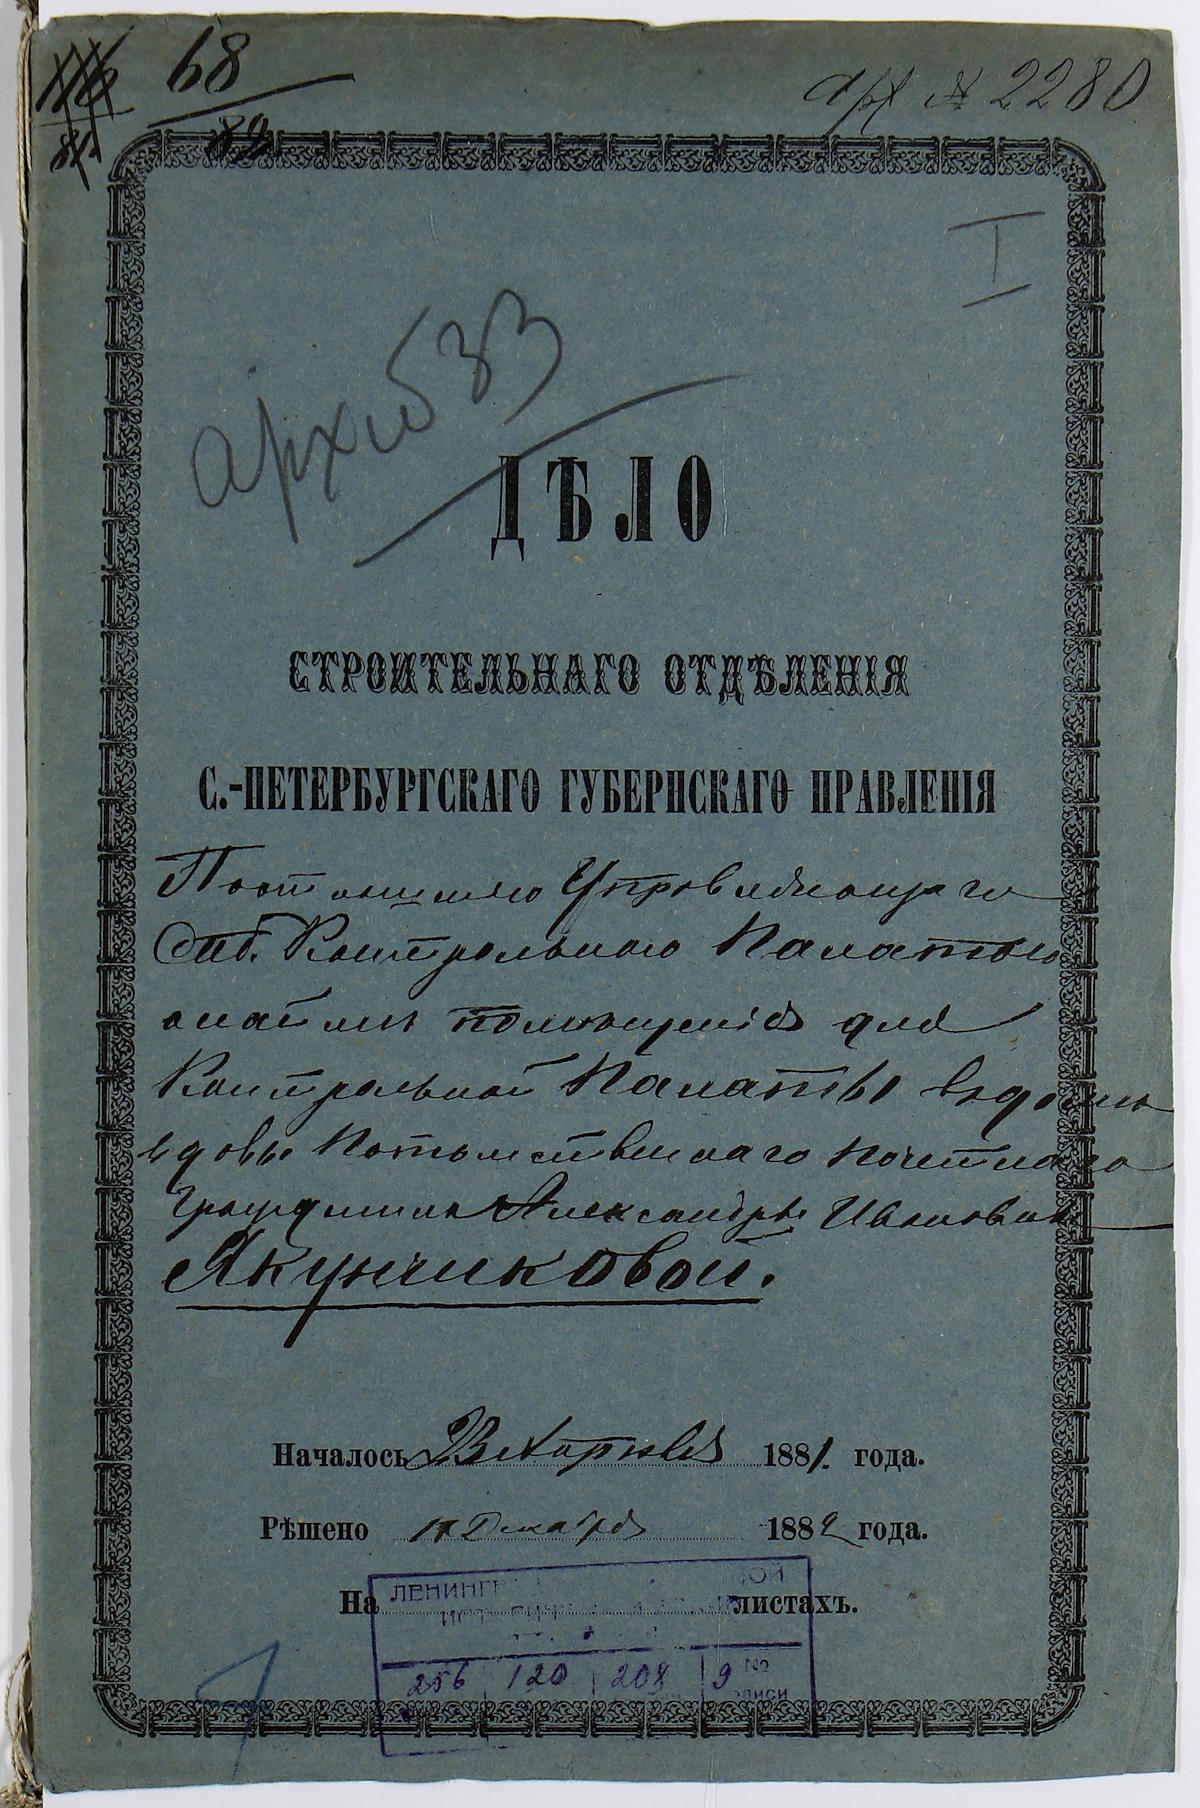 68
82
арх № 2280
I
архив 33
ДѢЛО
СТРОИТЕЛЬНАГО ОТДѢЛЕНІЯ
С.-ПЕТЕРБУРГСКАГО ГУБЕРНСКАГО ПРАВЛЕНІЯ
По отношенію Управляющаго
Спб. Контрольною Палатою
о найме помещенія для
Контрольной Палаты в доме
вдовы Потомственнаго Почетнаго
Гражданина Александры Ивановны
Якунчиковой.
Началось 23 Апреля 1881. года.
Рѣшено 17 Декабря 1882 года.
На листахъ.
256 120 208 9 №